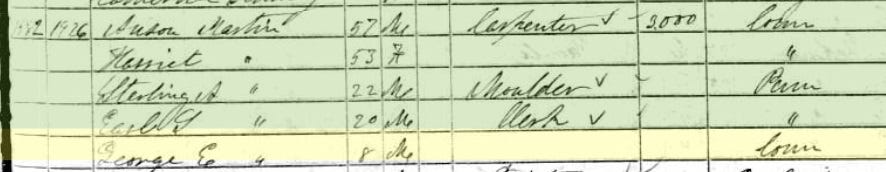 1882 1926 Anson Martin 57 M Carpenter ✓ 3,000 Conn
Harriet " 53 F "
Sterling A " 22 M Moulder ✓ Penn
Earl S " 20 M Clerk ✓ "
George E " 8 M Conn